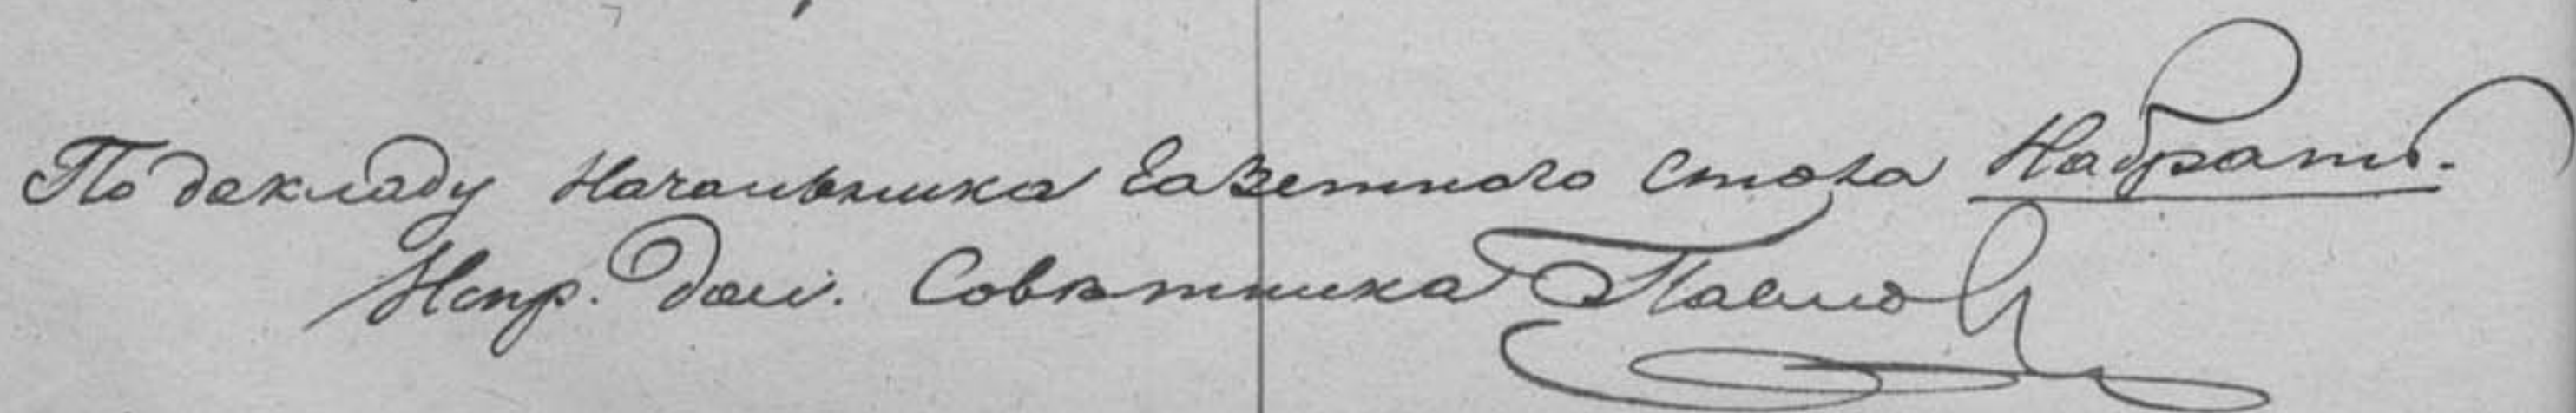 По докладу Начальника Газетного Стола Набрать.
Испр. Дол. Совѣтника Павлов